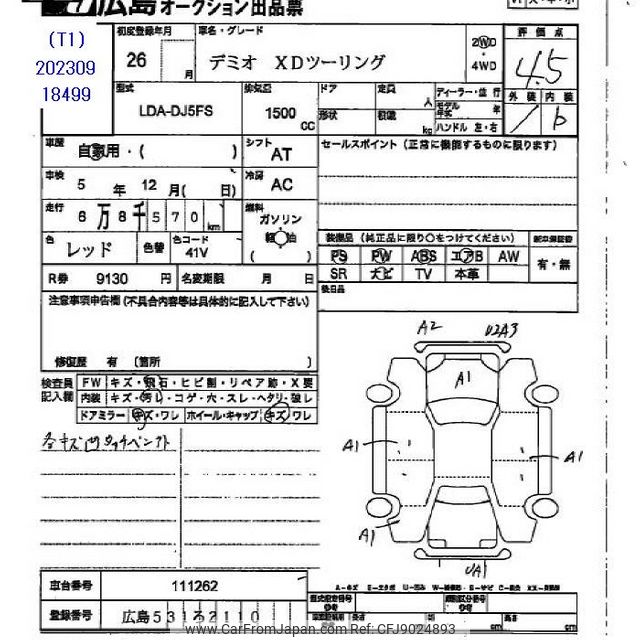 広島オークション出品票
(T1)
202309
18499
初度登録年月
26
月
車名・グレード
デミオ XDツーリング
2WD
4WD
評価点
4.5
外装 内装
b
型式
LDA-DJ5FS
排気量
1500
CC
ドア
定員
人
形状
積載
kg
ディーラー・並行
モデル年式
年
ハンドル 左・右
車歴
自家用・( )
シフト
AT
セールスポイント (正常に機能するものに限ります)
車検
5 年 12 月( 日)
冷房
AC
走行
6万8千570 km
燃料
ガソリン
軽油
色
レッド
色替
色コード
41V
装備品 (純正品に限り○をつけてください)
新車保証書
PS PW ABS エアB AW
有・無
SR ナビ TV 本革
R券 9130 円
名変期限 月 日
後日品
注意事項申告欄 (不具合内容等は具体的に記入して下さい)
修復歴 有 (箇所 )
検査員記入欄
FW キズ・飛石・ヒビ割・リペア跡・X要
内装 キズ・汚れ・コゲ・穴・スレ・ヘタリ・破レ
ドアミラー キズ・ワレ ホイール・キャップ キズ・ワレ
各キズ凹タッチペント
A2
U2A3
A1
A1
A1
A1
UA1
車台番号 111262
登録番号 広島531ろ2110
www.CarFromJapan.com Ref: CFJ9024893